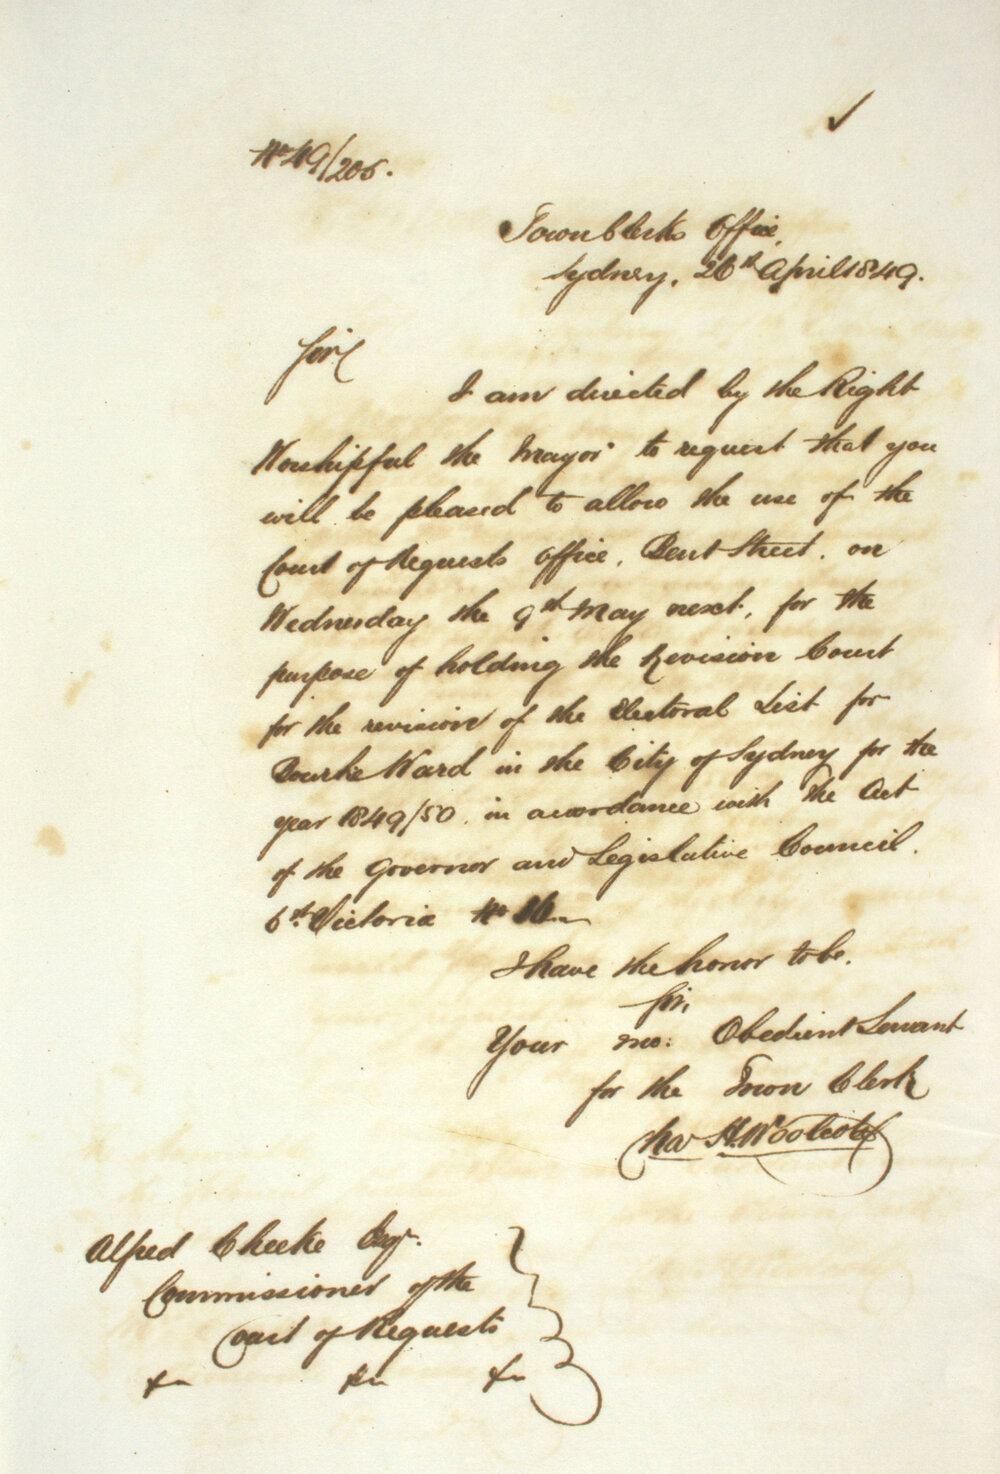 No 49/206.
Town Clerks Office,
Sydney, 26th April 1849.
Sir
I am directed by the Right
Worshipful the Mayor to request that you
will be pleased to allow the use of the
Court of Requests Office, Bent Street, on
Wednesday the 9th May next, for the
purpose of holding the Revision Court
for the revision of the Electoral List for
Bourke Ward in the City of Sydney for the
year 1849/50 in accordance with the Act
of the Governor and Legislative Council.
6th Victoria No
I have the honor to be.
Sir,
Your mo: Obedient Servant
for the Town Clerk
Chas H. Woolcott
Alfred Cheeke Esqr.
Commissioner of the
Court of Requests
&c &c &c